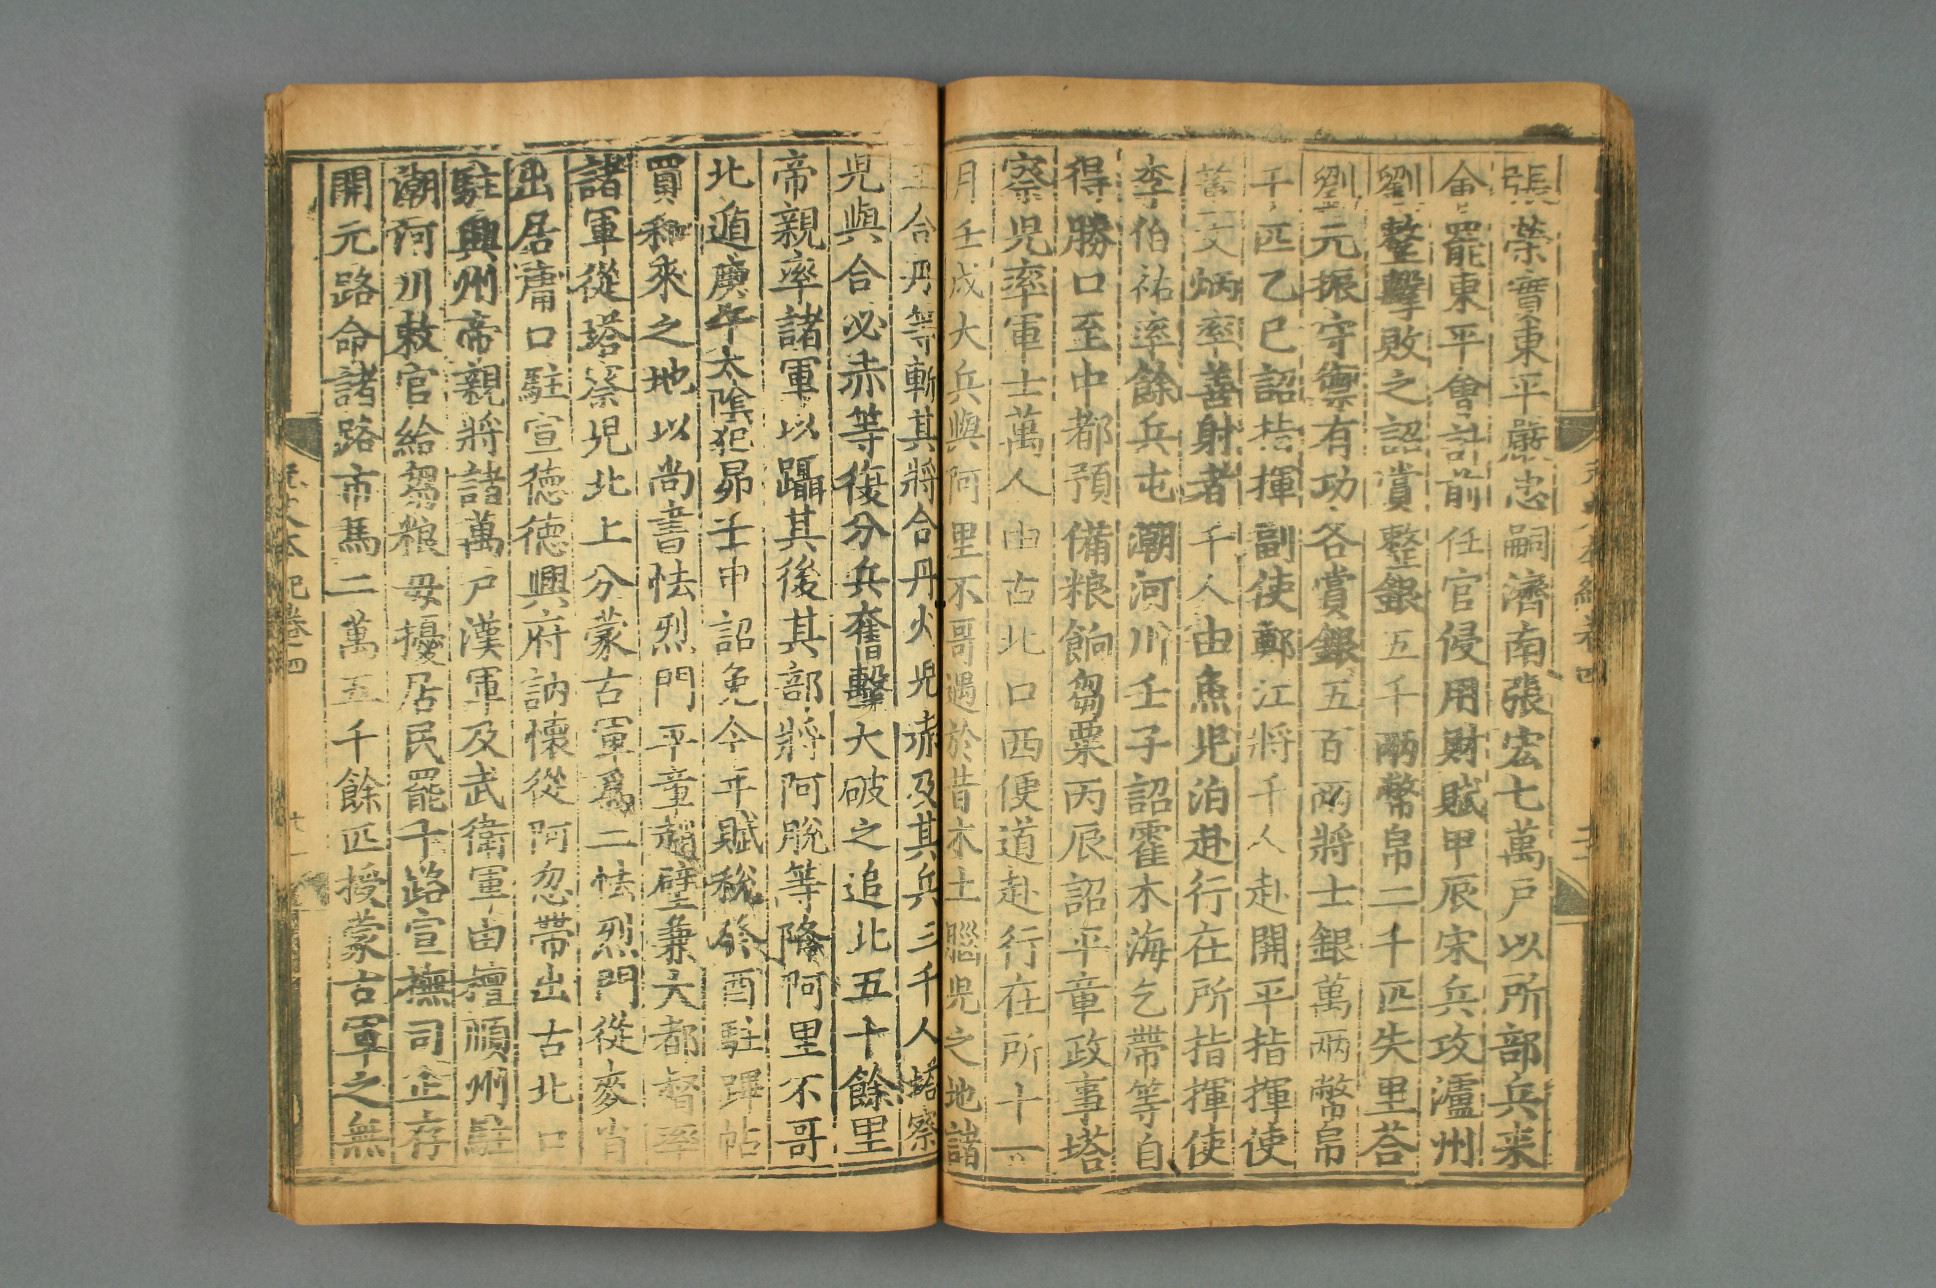 張榮實東平嚴忠嗣濟南張宏七萬戶以所部兵来
會罷東平會計前任官侵用財賦甲辰宋兵攻瀘州
劉整擊敗之詔賞整銀五千兩幣帛二千匹失里荅
劉元振守禦有功各賞銀五百兩將士銀萬兩幣帛
千匹乙巳詔指揮副使鄭江將千人赴開平指揮使
董文炳率善射者千人由魚児泊赴行在所指揮使
李伯祐率餘兵屯潮河川壬子詔霍木海乞帶等自
得勝口至中都預備粮餉芻粟丙辰詔平章政事塔
察児率軍士萬人由古北口西便道赴行在所十一
月壬戌大兵與阿里不哥遇於昔木土腦児之地諸
王合丹等斬其將合丹火児赤及其兵三千人塔察
児與合必赤等復分兵奮擊大破之追北五十餘里
帝親率諸軍以躡其後其部將阿脫等降阿里不哥
北遁庚午太陰犯昴壬申詔免今年賦稅癸酉駐蹕帖
買和來之地以尚書怯烈門平章趙璧兼大都督率
諸軍從塔察児北上分蒙古軍爲二怯烈門從麥肖
出居庸口駐宣德德興府訥懷從阿忽帶出古北口
駐興州帝親將諸萬戶漢軍及武衛軍由檀順州駐
潮河川敕官給芻粮毋擾居民罷十路宣撫司止存
開元路命諸路市馬二萬五千餘匹授蒙古軍之無
元史本紀卷四